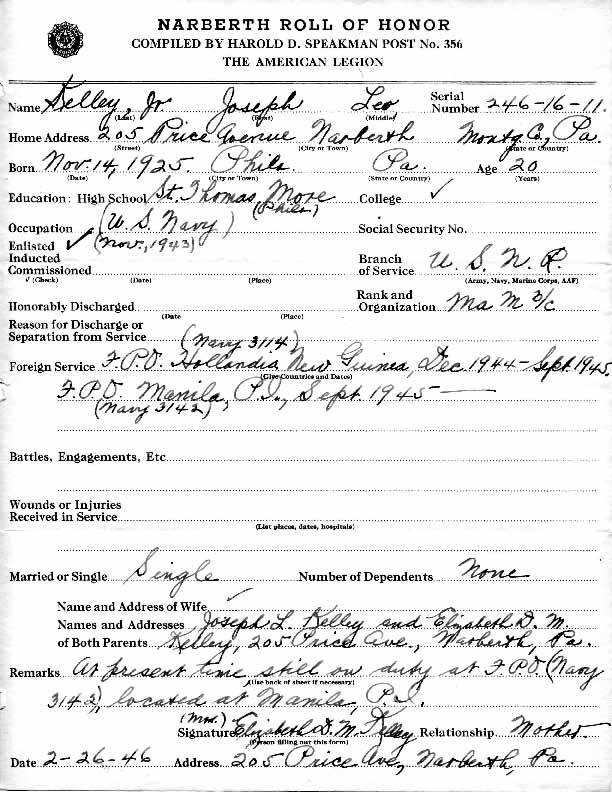 NARBERTH ROLL OF HONOR
COMPILED BY HAROLD D. SPEAKMAN POST No. 356
THE AMERICAN LEGION
Name Kelley, Jr Joseph Leo Serial Number 246-16-11
(Last) (First) (Middle)
Home Address 205 Price Avenue Narberth Montg Co., Pa.
(Street) (City or Town) (State or Country)
Born Nov. 14, 1925. Phila. Pa. Age 20
(Date) (City or Town) (State or Country) (Years)
Education: High School St. Thomas More College ✓
(Phila)
Occupation (U.S. Navy) Social Security No.
Enlisted ✓ (Nov., 1943)
Inducted Branch
Commissioned of Service U. S. N. R.
√ (Check) (Date) (Place) (Army, Navy, Marine Corps, AAF)
Rank and
Honorably Discharged Organization Ma M 3/c
(Date (Place)
Reason for Discharge or
Separation from Service (Navy 3114)
Foreign Service F.P.O. Hollandia, New Guinea, Dec 1944 - Sept. 1945.
(Give Countries and Dates)
F.P.O. Manila, P.I., Sept. 1945 —
(Navy 3142)
Battles, Engagements, Etc
Wounds or Injuries
Received in Service
(List places, dates, hospitals)
Married or Single Single Number of Dependents None
Name and Address of Wife ✓
Names and Addresses Joseph L. Kelley and Elizabeth D. M.
of Both Parents Kelley, 205 Price Ave., Narberth, Pa.
Remarks At present time still on duty at F.P.O. (Navy
(Use back of sheet if necessary)
3142), located at Manila, P.I.
(Mrs.)
Signature Elizabeth D. M. Kelley Relationship Mother
(Person filling out this form)
Date 2-26-46 Address 205 Price Ave., Narberth, Pa.